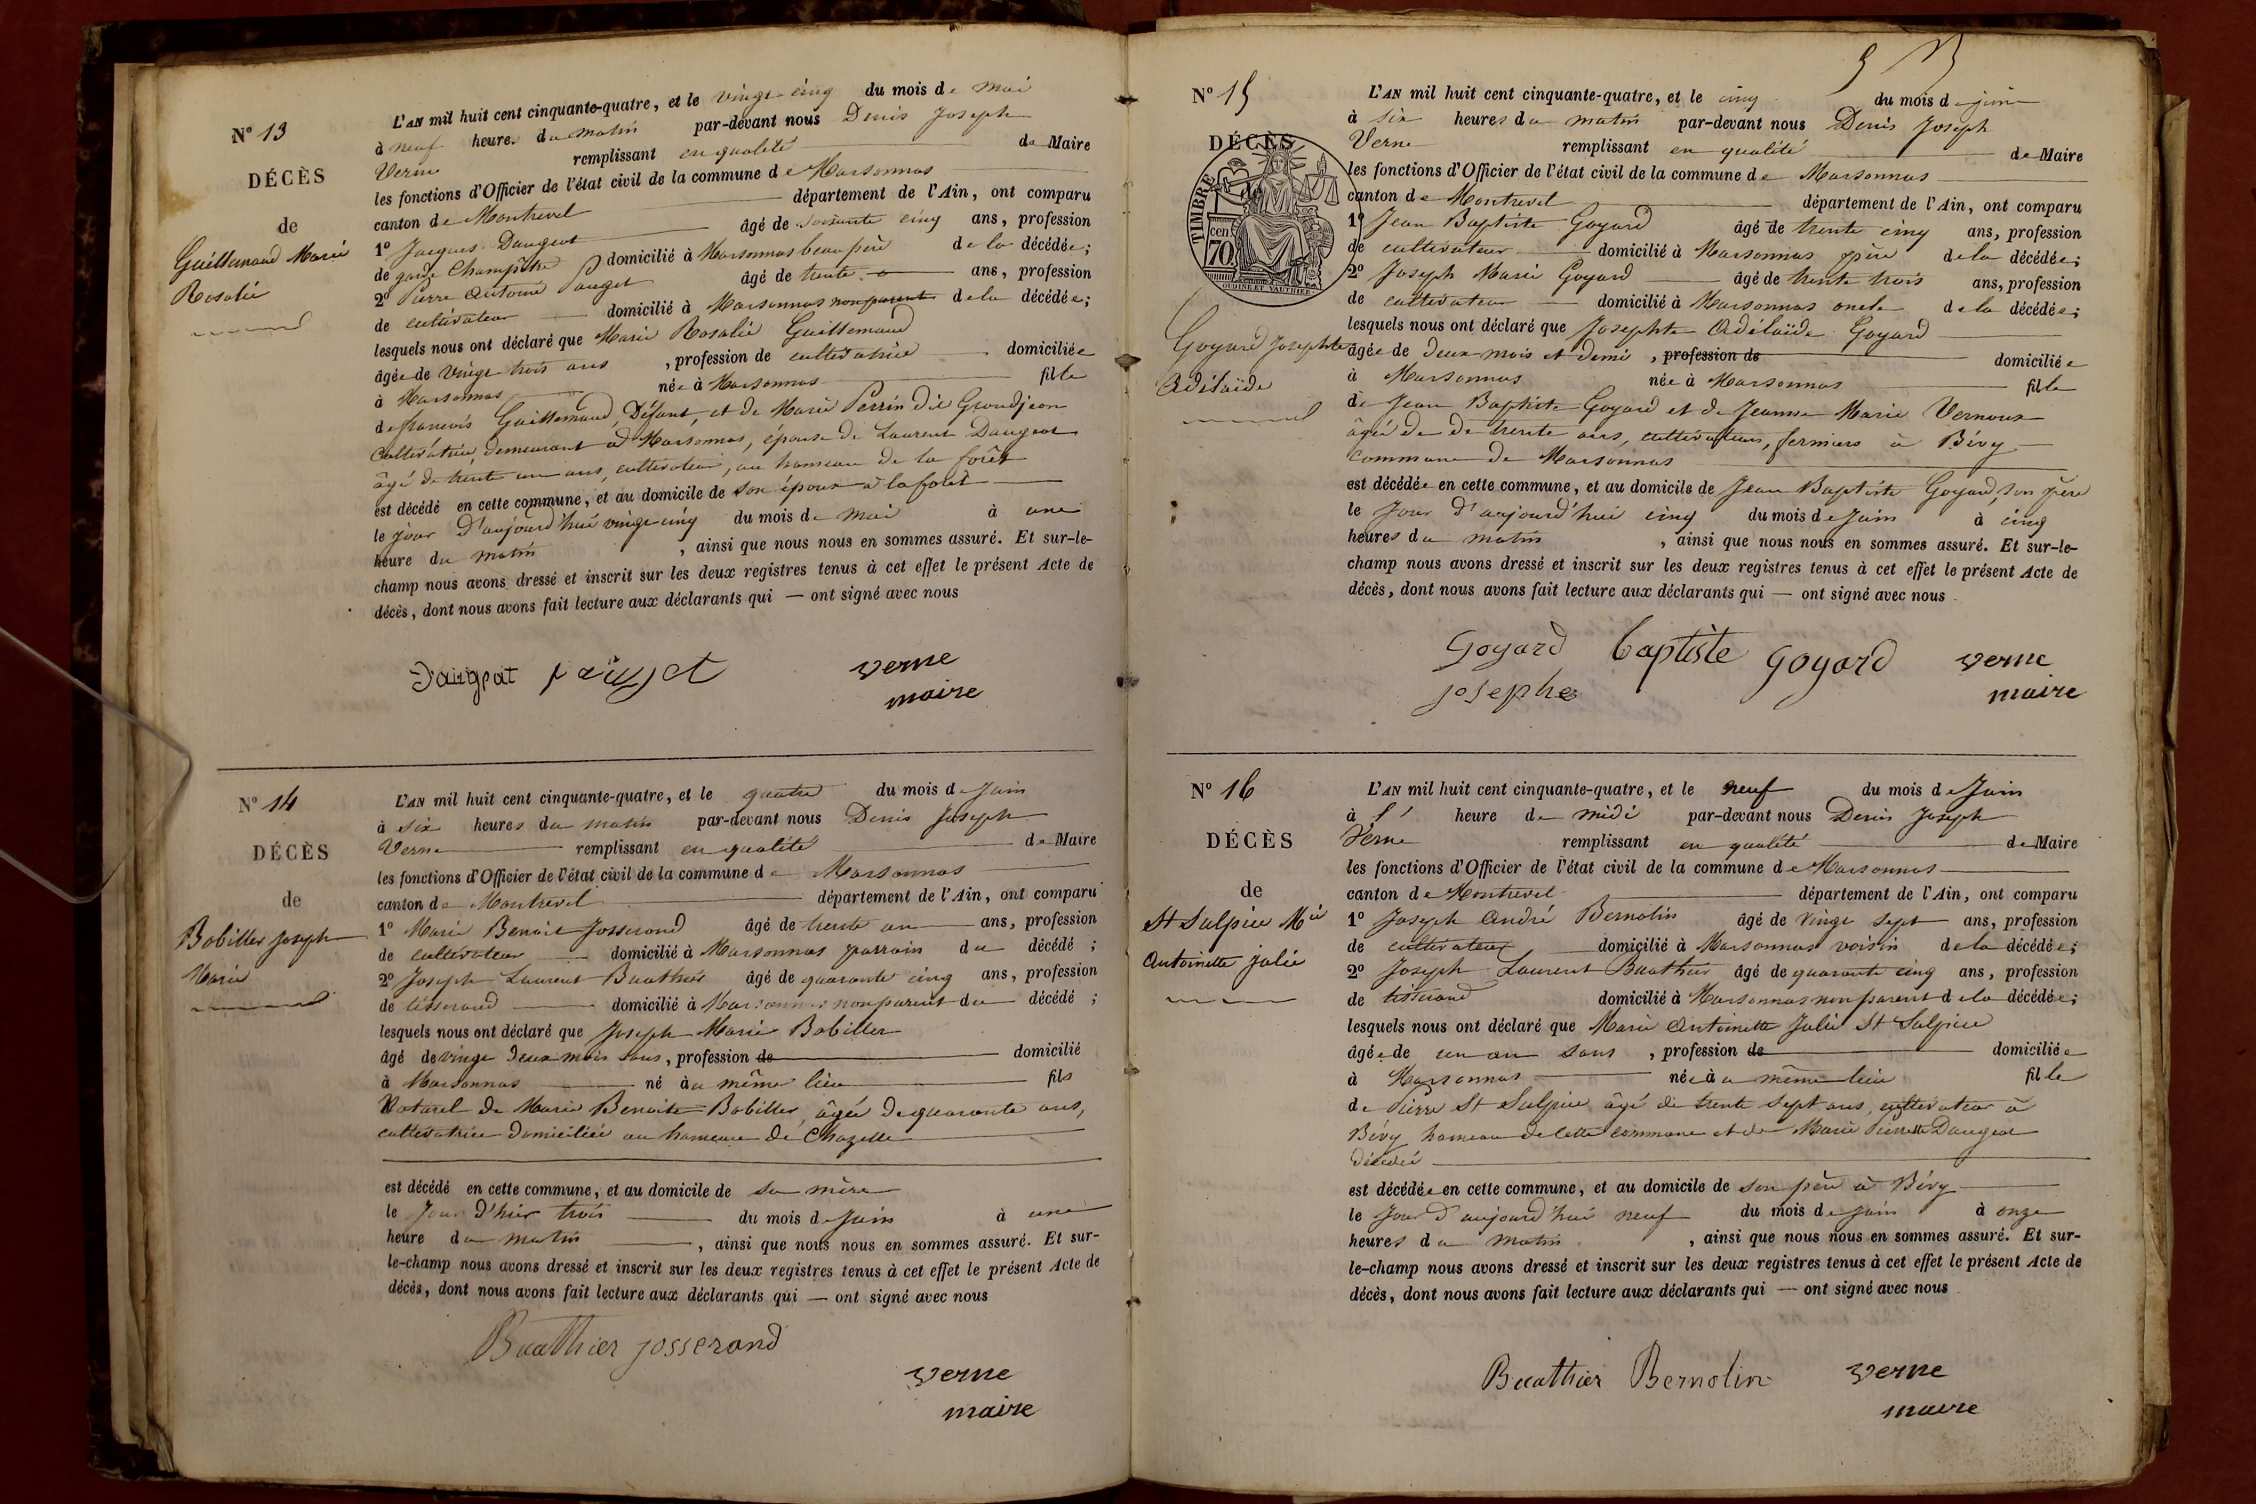 N° 13
DÉCÈS
de
Guillemaud Marie
Rosalie
L'AN mil huit cent cinquante-quatre, et le vingt cinq du mois de Mai
à neuf heures du matin par-devant nous Denis Joseph
Verne remplissant en qualité de Maire
les fonctions d'Officier de l'état civil de la commune de Marsonnas
canton de Montrevel département de l'Ain, ont comparu
1° Jacques Daugeat âgé de soixante cinq ans, profession
de garde Champêtre domicilié à Marsonnas beau père de la décédée;
2° Pierre Antoine Pauget âgé de trente ans, profession
de cultivateur domicilié à Marsonnas non parent de la décédée;
lesquels nous ont déclaré que Marie Rosalie Guillemaud
âgée de vingt trois ans, profession de cultivatrice domiciliée
à Marsonnas née à Marsonnas fille
de françois Guillemaud, Défunt, et de Marie Perrin dit Grandjean
Cultivatrice, demeurant à Marsonnas, épouse de Laurent Daugeat
âgé de trente un ans, cultivateur, au hameau de la forêt
est décédé en cette commune, et au domicile de son époux à la forêt
le jour d'aujourd'hui vingt cinq du mois de Mai à une
heure du matin, ainsi que nous nous en sommes assuré. Et sur-le-
champ nous avons dressé et inscrit sur les deux registres tenus à cet effet le présent Acte de
décès, dont nous avons fait lecture aux déclarants qui — ont signé avec nous
Daugeat pauget verne
maire
N° 14
DÉCÈS
de
Bobillet Joseph
Marie
L'AN mil huit cent cinquante-quatre, et le quatre du mois de Juin
à six heures du matin par-devant nous Denis Joseph
Verne remplissant en qualité de Maire
les fonctions d'Officier de l'état civil de la commune de Marsonnas
canton de Montrevel département de l'Ain, ont comparu
1° Marie Benoit Josserand âgé de trente un ans, profession
de cultivateur domicilié à Marsonnas parrain du décédé;
2° Joseph Laurent Buathier âgé de quarante cinq ans, profession
de tisserand domicilié à Marsonnas non parent du décédé;
lesquels nous ont déclaré que Joseph Marie Bobillet
âgé de vingt deux mois sans, profession de domicilié
à Marsonnas né au même lieu fils
Naturel de Marie Benoite Bobillet, âgée de quarante ans,
cultivatrice domiciliée au hameau de Chazelle
est décédé en cette commune, et au domicile de sa mère
le Jour d'hier trois du mois de Juin à une
heure du matin, ainsi que nous nous en sommes assuré. Et sur-
le-champ nous avons dressé et inscrit sur les deux registres tenus à cet effet le présent Acte de
décès, dont nous avons fait lecture aux déclarants qui — ont signé avec nous
Buathier josserand
verne
maire
N° 15
DÉCÈS
TIMBRE
70 cen
OUDINE ET VAUTHIER
Goyard Josephte
Adélaïde
L'AN mil huit cent cinquante-quatre, et le cinq du mois de juin
à six heures du matin par-devant nous Denis Joseph
Verne remplissant en qualité de Maire
les fonctions d'Officier de l'état civil de la commune de Marsonnas
canton de Montrevel département de l'Ain, ont comparu
1° Jean Baptiste Goyard âgé de trente cinq ans, profession
de cultivateur domicilié à Marsonnas père de la décédée;
2° Joseph Marie Goyard âgé de trente trois ans, profession
de cultivateur domicilié à Marsonnas oncle de la décédée;
lesquels nous ont déclaré que Josephte Adélaïde Goyard
âgée de deux mois et demi, profession de domiciliée
à Marsonnas née à Marsonnas fille
de Jean Baptiste Goyard et de Jeanne Marie Vernoux
âgée de de trente ans, cultivateurs, fermiers à Bévy
commune de Marsonnas
est décédée en cette commune, et au domicile de Jean Baptiste Goyard, son père
le Jour d'aujourd'hui cinq du mois de Juin à cinq
heures du matin, ainsi que nous nous en sommes assuré. Et sur-le-
champ nous avons dressé et inscrit sur les deux registres tenus à cet effet le présent Acte de
décès, dont nous avons fait lecture aux déclarants qui — ont signé avec nous
Goyard baptiste goyard verne
josephe maire
N° 16
DÉCÈS
de
St Sulpice Mie
Antoinette Julie
L'AN mil huit cent cinquante-quatre, et le neuf du mois de Juin
à heure de midi par-devant nous Denis Joseph
Verne remplissant en qualité de Maire
les fonctions d'Officier de l'état civil de la commune de Marsonnas
canton de Montrevel département de l'Ain, ont comparu
1° Joseph André Bernolin âgé de vingt sept ans, profession
de cultivateur domicilié à Marsonnas voisin de la décédée;
2° Joseph Laurent Buathier âgé de quarante cinq ans, profession
de tisserand domicilié à Marsonnas non parent de la décédée;
lesquels nous ont déclaré que Marie Antoinette Julie St Sulpice
âgée de un an sans, profession de domiciliée
à Marsonnas née au même lieu fille
de Pierre St Sulpice âgé de trente sept ans, cultivateur à
Bévy hameau de cette commune et de Marie Pierrette Daugeat
décédée
est décédée en cette commune, et au domicile de son père à Bévy
le Jour d'aujourd'hui neuf du mois de juin à onze
heures du matin, ainsi que nous nous en sommes assuré. Et sur-
le-champ nous avons dressé et inscrit sur les deux registres tenus à cet effet le présent Acte de
décès, dont nous avons fait lecture aux déclarants qui — ont signé avec nous
Buathier Bernolin verne
maire